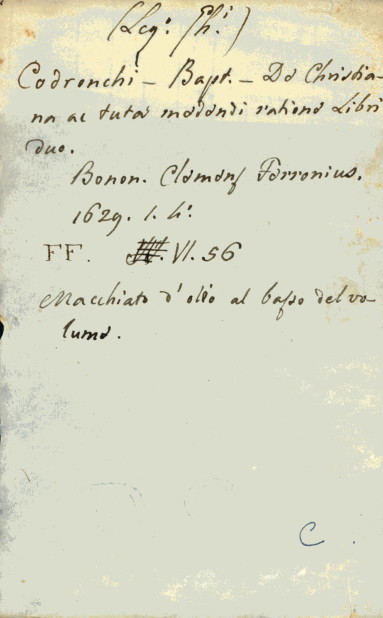 (Leg. Ph.)
Codronchi - Bapt. - De Christia-
na ac tuta medendi ratione Libri
duo.
Bonon. Clemens Ferronius.
1629. 1. 4.
FF. VI. 56
Macchiato d'olio al basso del vo-
lume.
C.